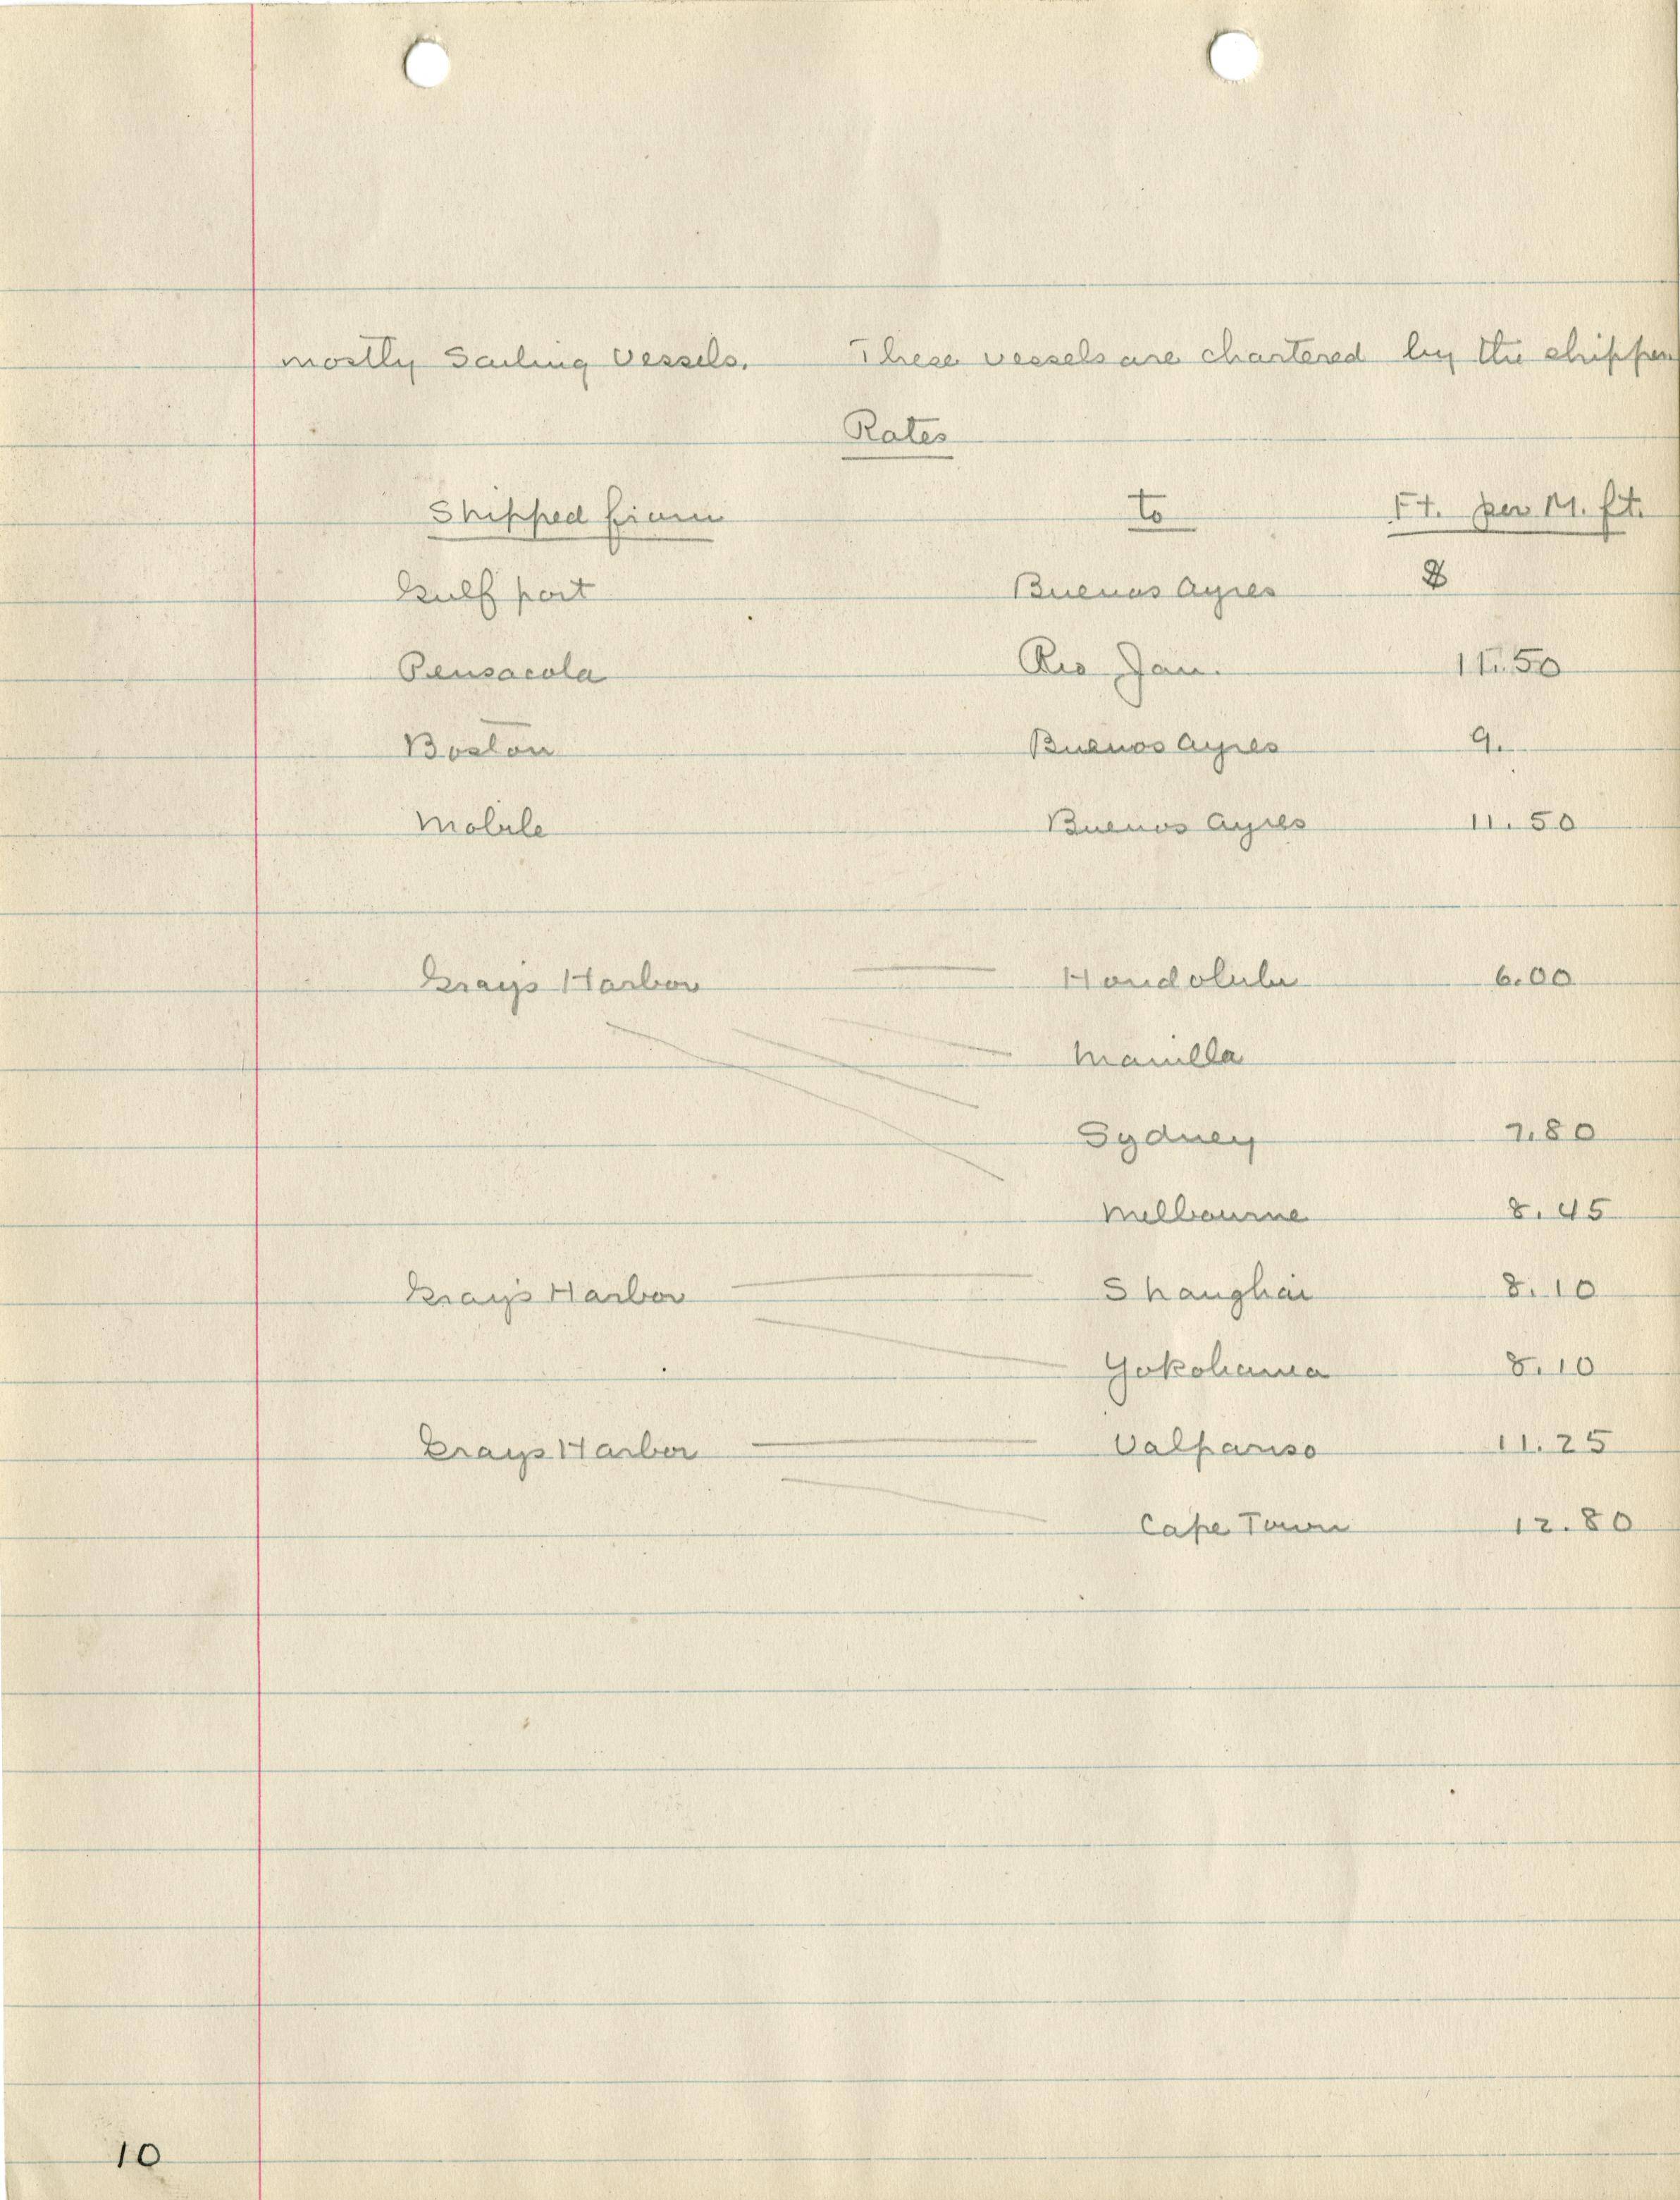 mostly Sailing Vessels. These vessels are chartered by the shipper
Rates
Shipped from to Ft. per M. ft.
Gulf port Buenos Ayres 8
Pensacola Rio Jan. 11.50
Boston Buenos Ayres 9.
Mobile Buenos Ayres 11.50
Grays Harbor Hondolulu 6.00
Manilla
Sydney 7.80
Melbourne 8.45
Grays Harbor Shanghai 8.10
Yokohama 8.10
Grays Harbor Valpariso 11.25
Cape Town 12.80
10